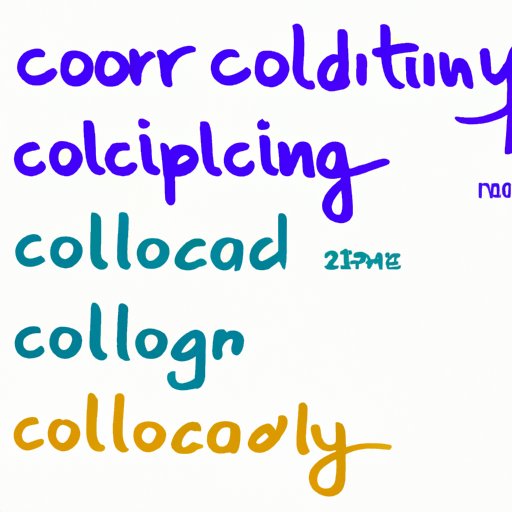 coorr coldıtiny
colciplcing
collocad
collogn
collocadly